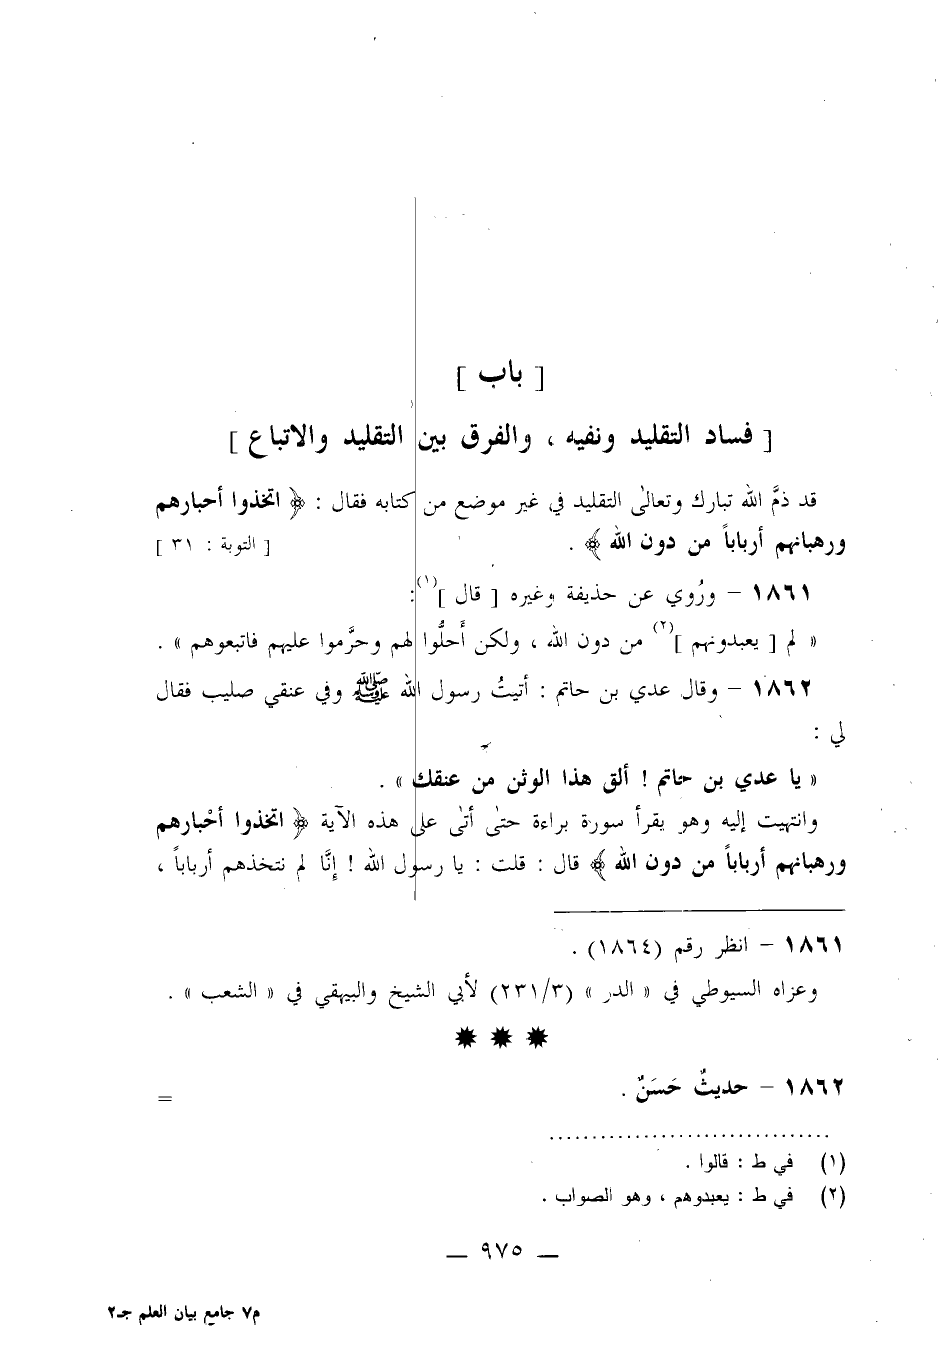 [ باب ]
[ فساد التقليد ونفيه ، والفرق بين التقليد والاتباع ]
قد ذمَّ الله تبارك وتعالىٰ التقليد في غير موضع من كتابه فقال : ﴿ اتخذوا أحبارهم
ورهبانهم أرباباً من دون الله ﴾ . [ التوبة : ٣١ ]
١٨٦١ – ورُوي عن حذيفة وغيره [ قال ](١) :
« لم [ يعبدونهم ](٢) من دون الله ، ولكن أَحلُّوا لهم وحرَّموا عليهم فاتبعوهم » .
١٨٦٢ – وقال عدي بن حاتم : أتيتُ رسول الله ﷺ وفي عنقي صليب فقال
لي :
« يا عدي بن حاتم ! ألق هذا الوثن من عنقك » .
وانتهيت إليه وهو يقرأ سورة براءة حتىٰ أتىٰ على هذه الآية ﴿ اتخذوا أحْبارهم
ورهبانهم أرباباً من دون الله ﴾ قال : قلت : يا رسول الله ! إنَّا لم نتخذهم أرباباً ،
١٨٦١ – انظر رقم (١٨٦٤) .
وعزاه السيوطي في « الدر » (٢٣١/٣) لأبي الشيخ والبيهقي في « الشعب » .
✸ ✸ ✸
١٨٦٢ – حديثٌ حَسَنٌ . =
................................
(١) في ط : قالوا .
(٢) في ط : يعبدوهم ، وهو الصواب .
— ٩٧٥ —
م٧ جامع بيان العلم جـ٢